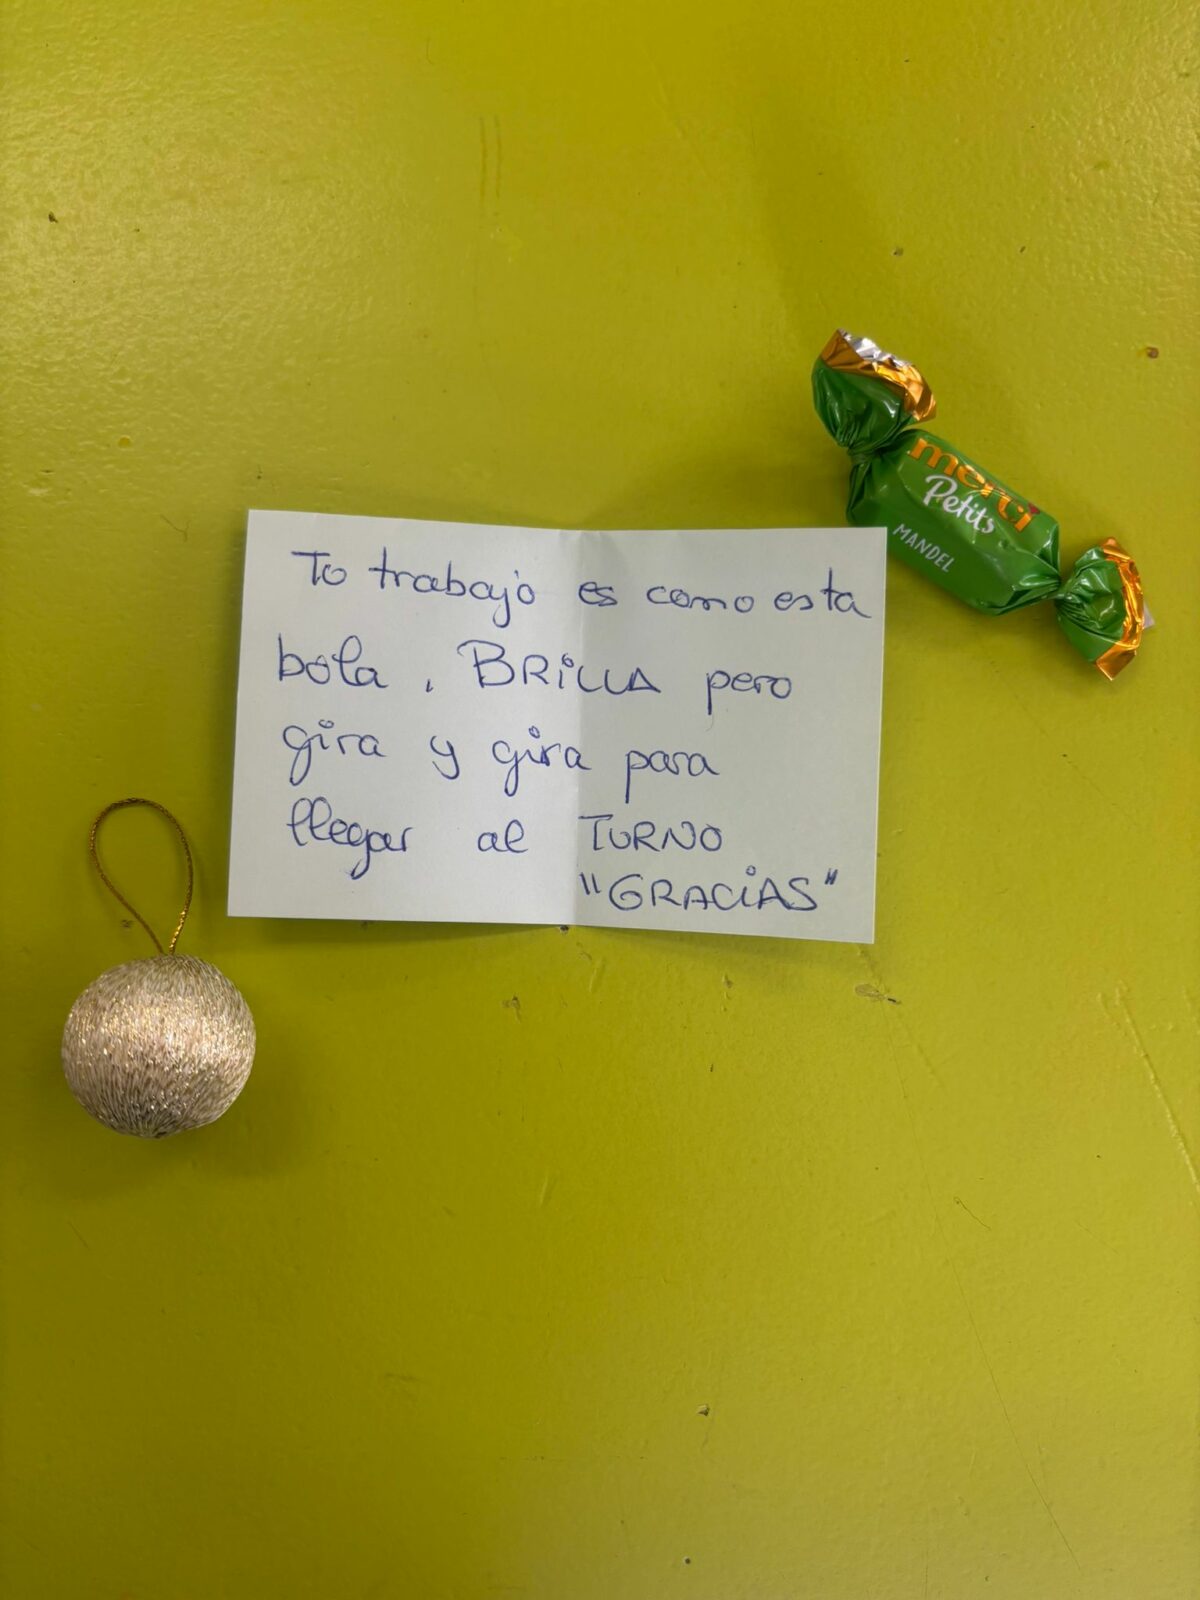 To trabajo es como esta
bola, BRiLLA pero
gira y gira para
llegar al TURNO
"GRACiAS"
merci
Petits
MANDEL